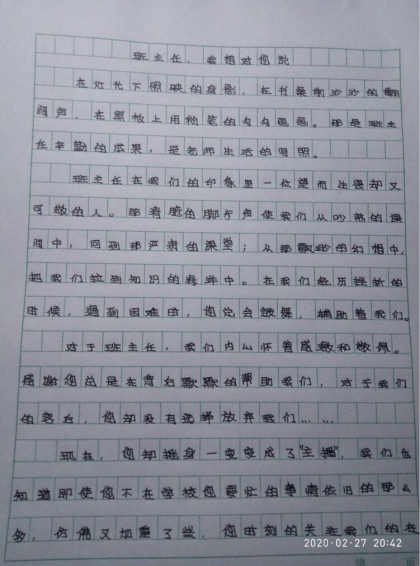 班主任，我想对您说
在灯光下照映的身影，在书桌前沙沙的翻
阅声，在黑板上用粉笔的勾勾画画。那是班主
任辛勤的成果，是老师生活的写照。
班主任在我们的印象里一位望而生畏却又
可敬的人。那清脆的脚步声使我们从吵热的课
间中，回到那严肃的课堂；从那飘渺的幻想中，
把我们拉到知识的海洋中。在我们经历挫折的
时候，遇到困难时，您总会鼓舞，辅助着我们。
对于班主任，我们内心怀着感激和敬佩。
感谢您总是在背后默默的帮助我们，对于我们
的落后，您却没有选择放弃我们……
现在，您却摇身一变变成了"主播"，我们也
知道即使您不在学校您要忙的事情依旧的那么
多，仿佛又加重了些，您时刻的关注我们的在
2020-02-27 20:42